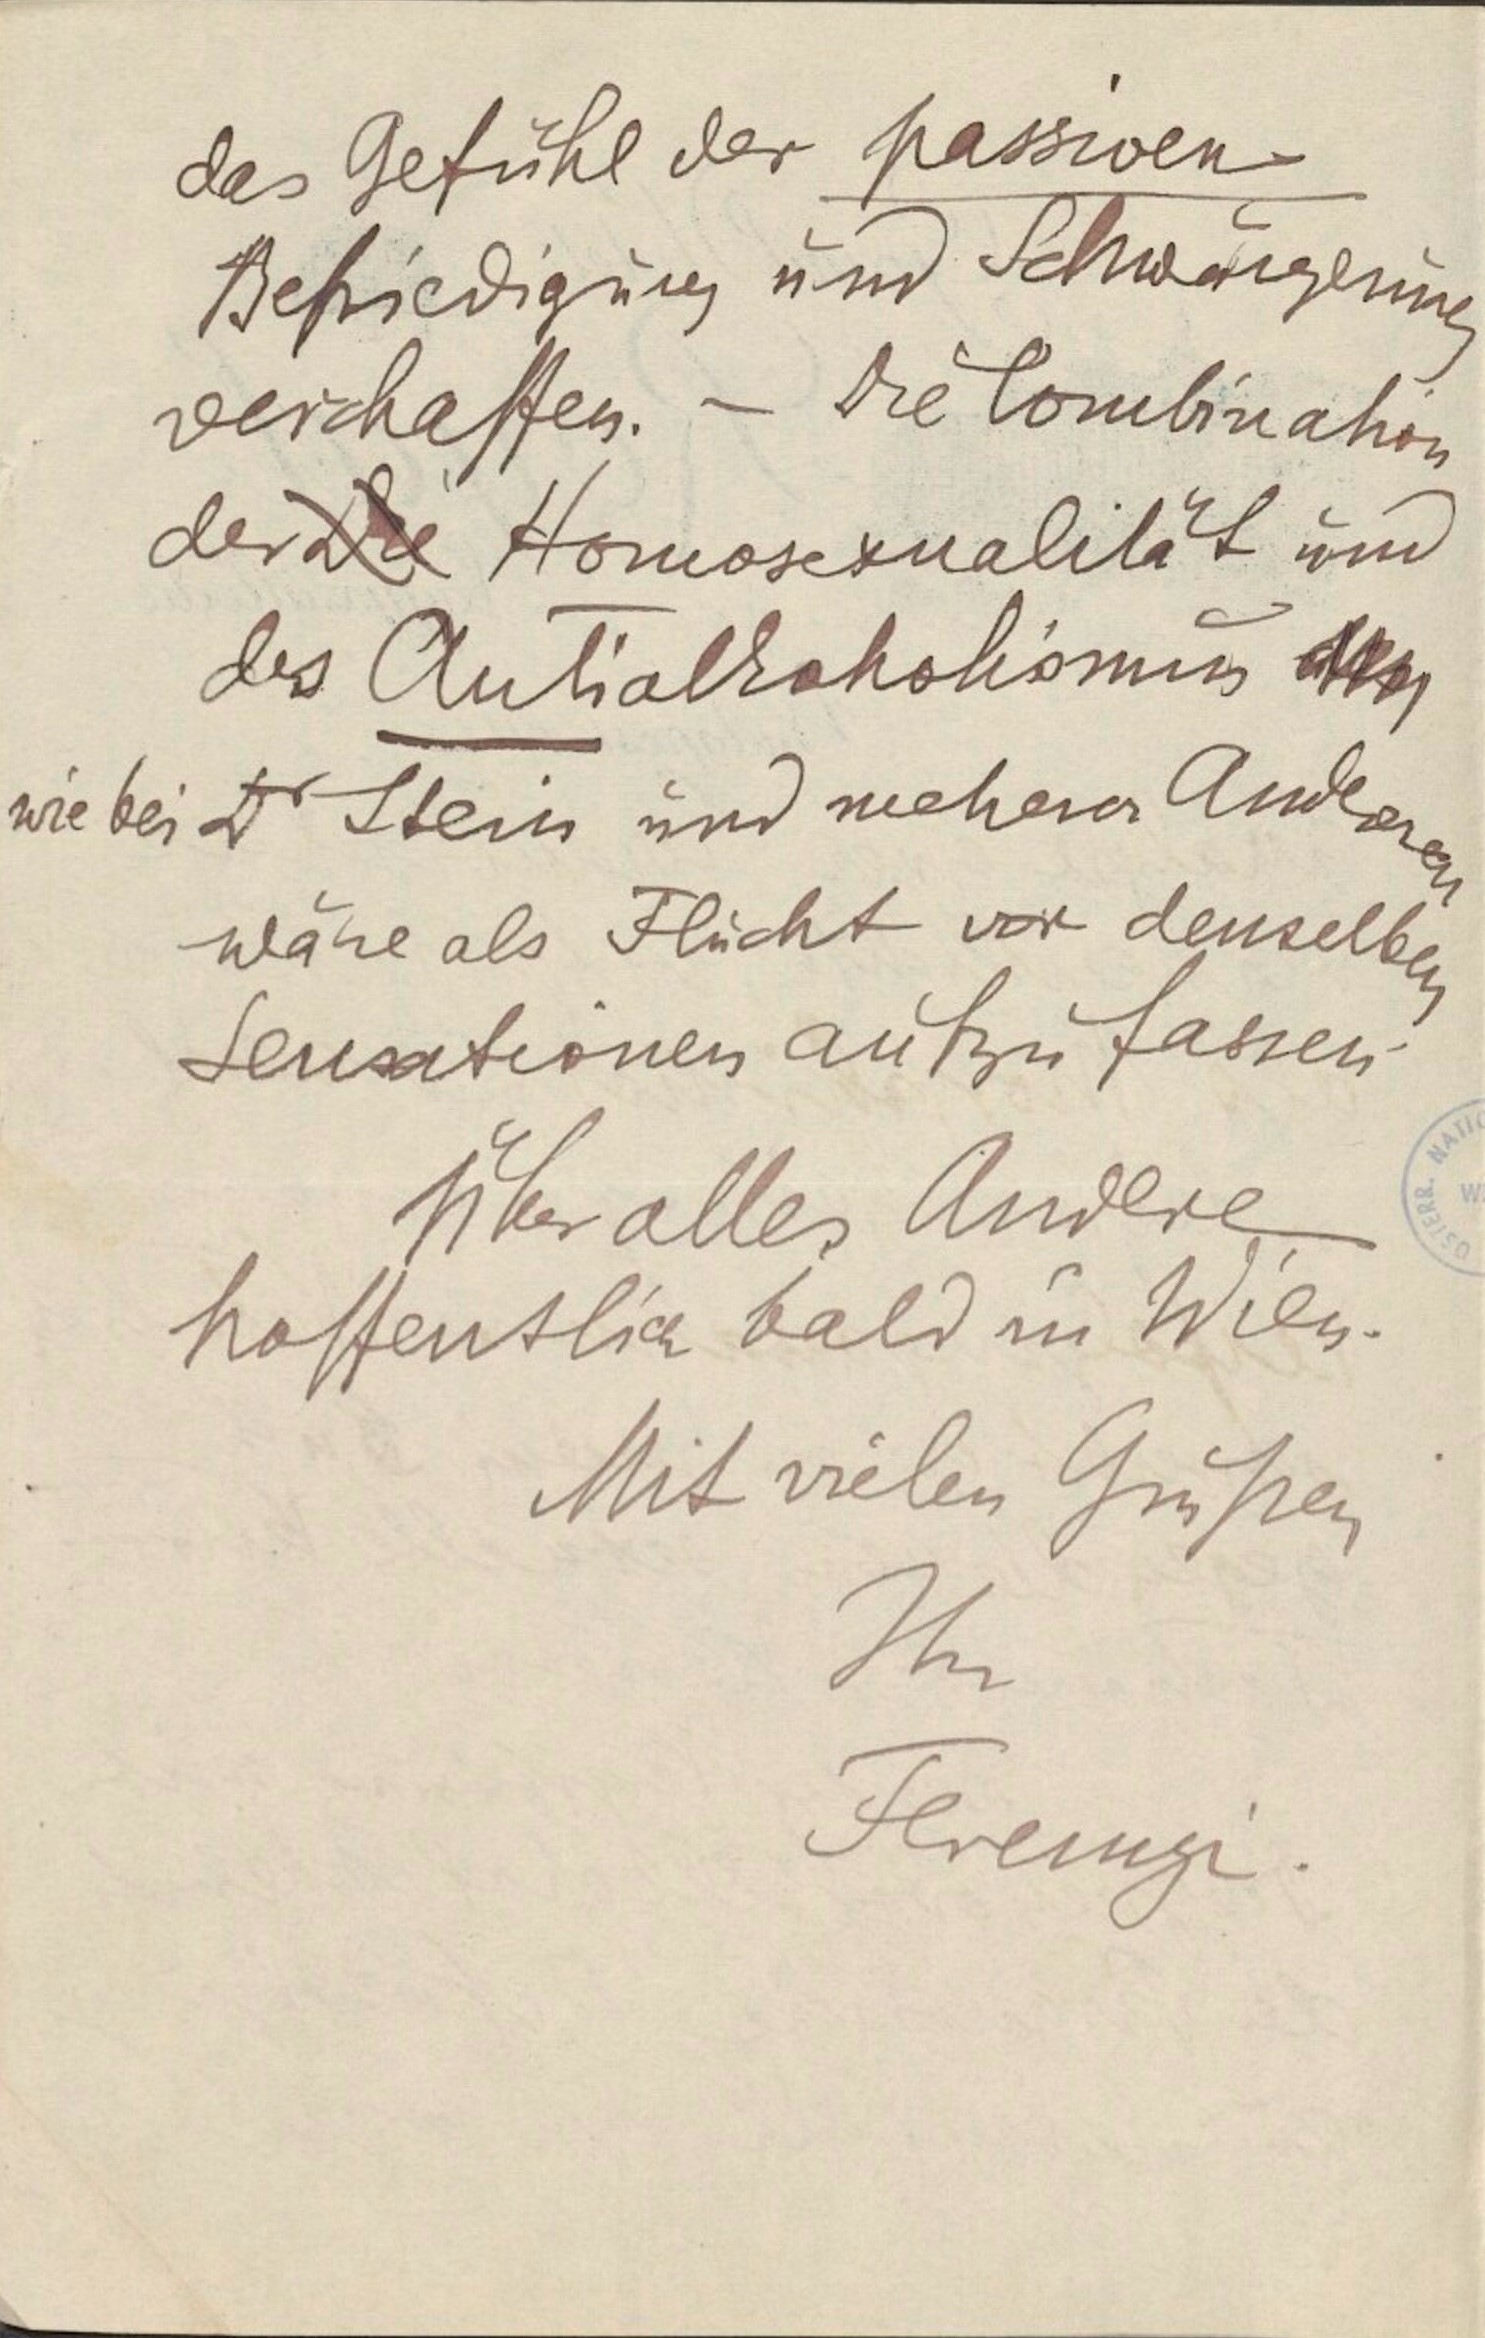 das Gefühl der passiven
Befriedigung und Schwängerung
verschaffen. – Die Combination
der Die Homosexualität und
des Antialkoholismus
wie bei Dr Stein und mehrerer Anderer
wäre als Flucht vor denselben
Sensationen aufzufassen.
Über alles Andere
hoffentlich bald in Wien.
Mit vielen Grüßen
Ihr
Ferenczi.
ÖSTERR. NATIO
W